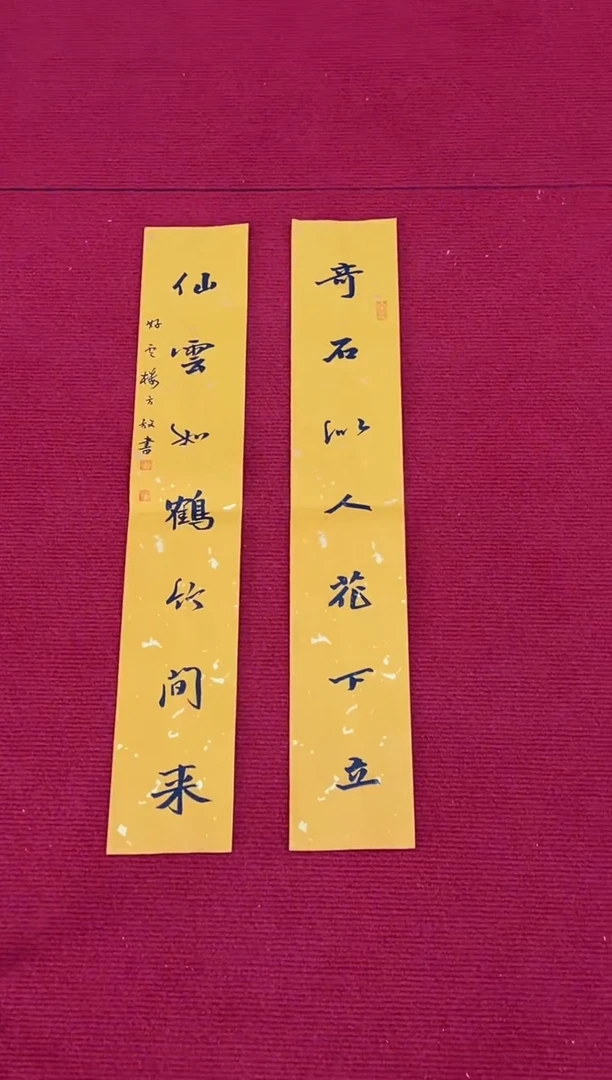 奇石似人花下立
仙雲如鶴竹间来
好雲樓方毅書